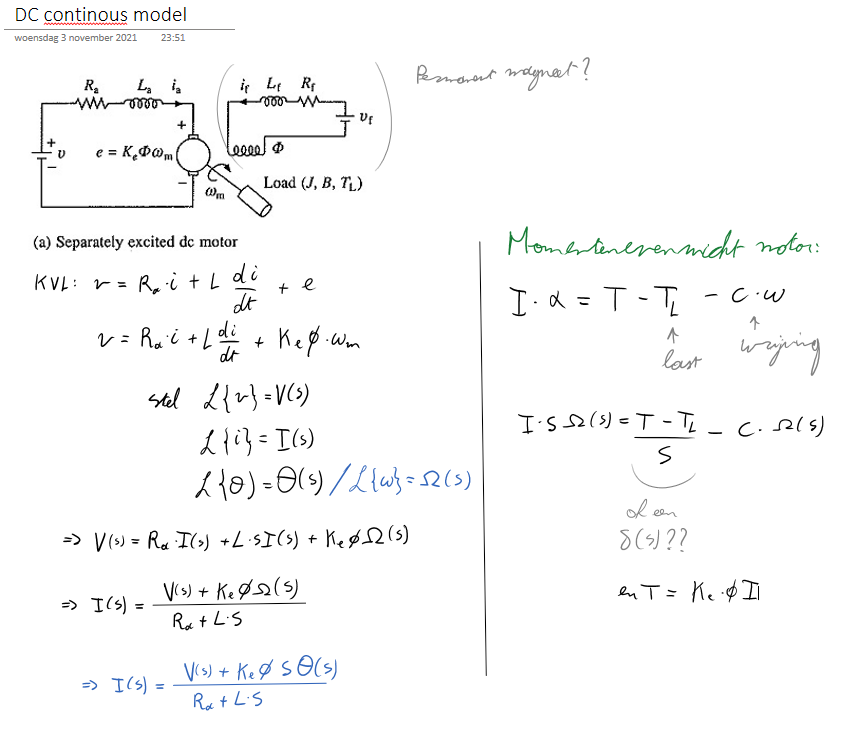 DC continous model
woensdag 3 november 2021 23:51
Permanent magneet?
Rₐ Lₐ iₐ i_f L_f R_f
+ υ − e = KₑΦωₘ + − Φ υ_f
ωₘ Load (J, B, T_L)
(a) Separately excited dc motor
KVL: v = Rₐ·i + L di/dt + e
v = Rₐ·i + L di/dt + Kₑϕ·ωₘ
stel ℒ{v} = V(s)
ℒ{i} = I(s)
ℒ{θ) = Θ(s) / ℒ{ω} = Ω(s)
=> V(s) = Rₐ·I(s) + L·sI(s) + KₑϕΩ(s)
=> I(s) = (V(s) + KₑϕΩ(s)) / (Rₐ + L·s)
=> I(s) = (V(s) + Kₑϕ s Θ(s)) / (Rₐ + L·s)
Momentenevenwicht motor:
I·α = T − T_L − c·ω
↑ last ↑ wrijving
I·s Ω(s) = (T − T_L) / s − c·Ω(s)
of een
δ(s)??
en T = Kₑ·ϕ I